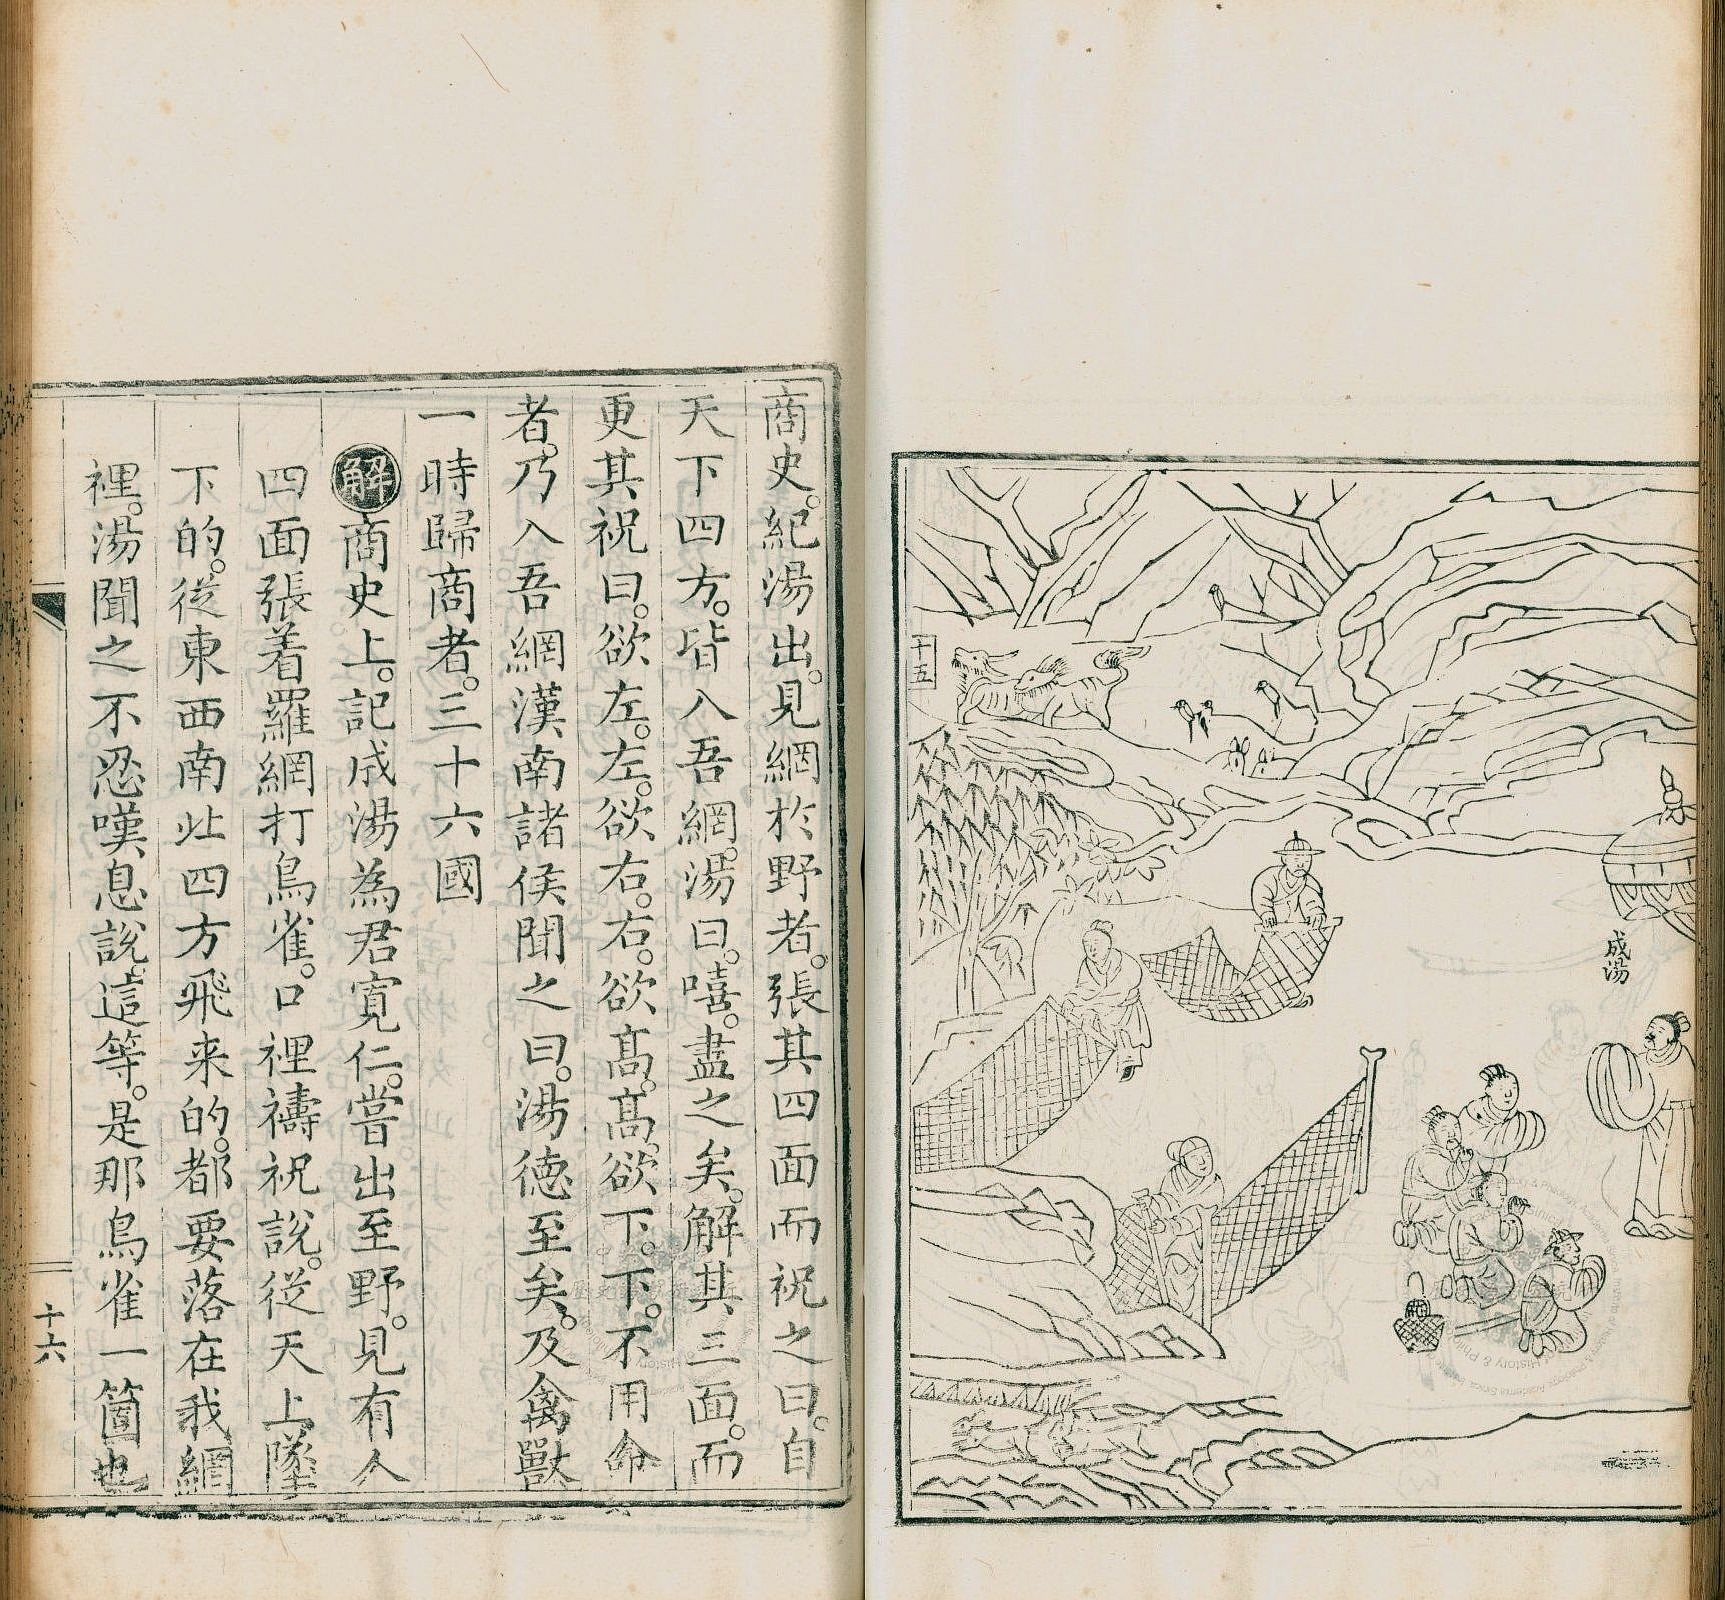 十五
成湯
商史。紀湯出。見網於野者。張其四面而祝之曰。自
天下四方。皆入吾網。湯曰。嘻。盡之矣。解其三面。而
更其祝曰。欲左。左。欲右。右。欲高。高。欲下。下。不用命
者。乃入吾網漢南諸侯聞之曰。湯德至矣。及禽獸
一時歸商者。三十六國
解商史上。記成湯為君寬仁。嘗出至野。見有人
四面張着羅網打鳥雀。口裡禱祝說。從天上墜
下的。從東西南北四方飛来的。都要落在我網
裡。湯聞之不忍嘆息說。這等。是那鳥雀一箇也
十六